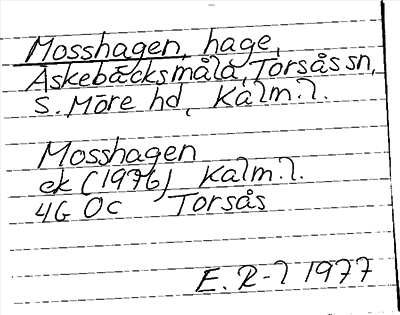 Mosshagen, hage,
Askebäcksmåla, Torsås sn,
S. Möre hd, Kalm. l.
Mosshagen
ek (1976) Kalm. l.
4G 0c Torsås
E. R-l 1977